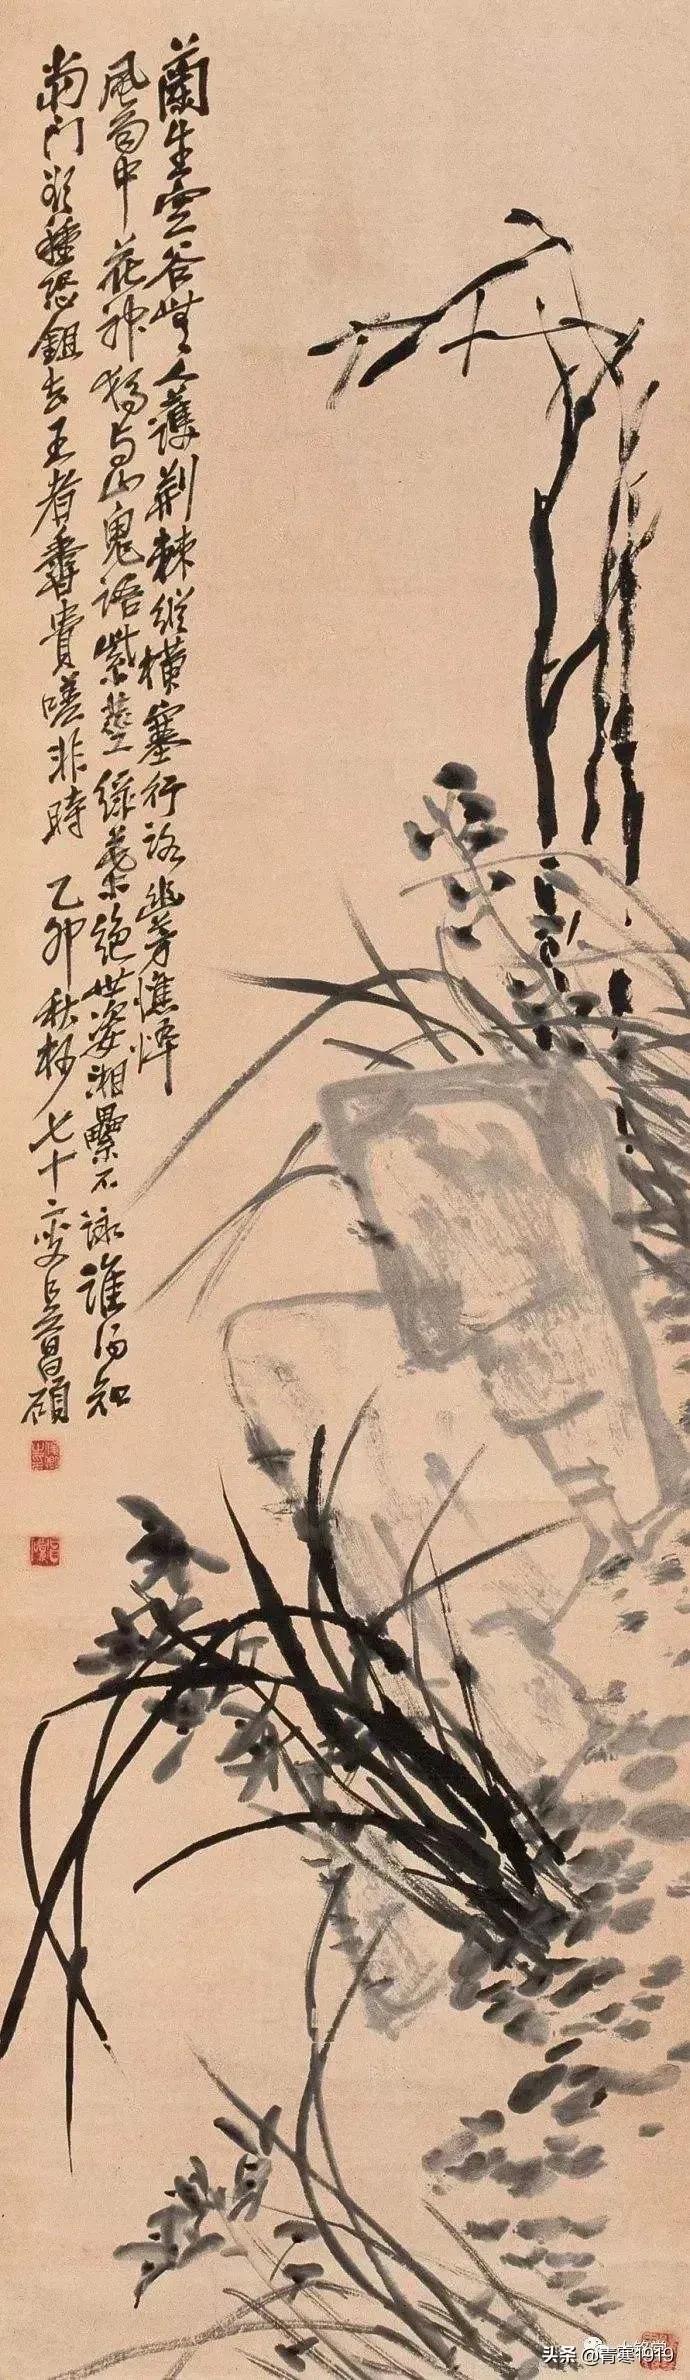 蘭生空谷無人護荆棘縱橫塞行路幽芳憔悴
風雨中花神獨与山鬼語紫莖綠葉絕世姿湘纍不詠誰得知
當門欲種恐鉏去王者香貴嗟非時 乙卯秋杪七十二叟吳昌碩
俊卿之印
头条 @青寒1919